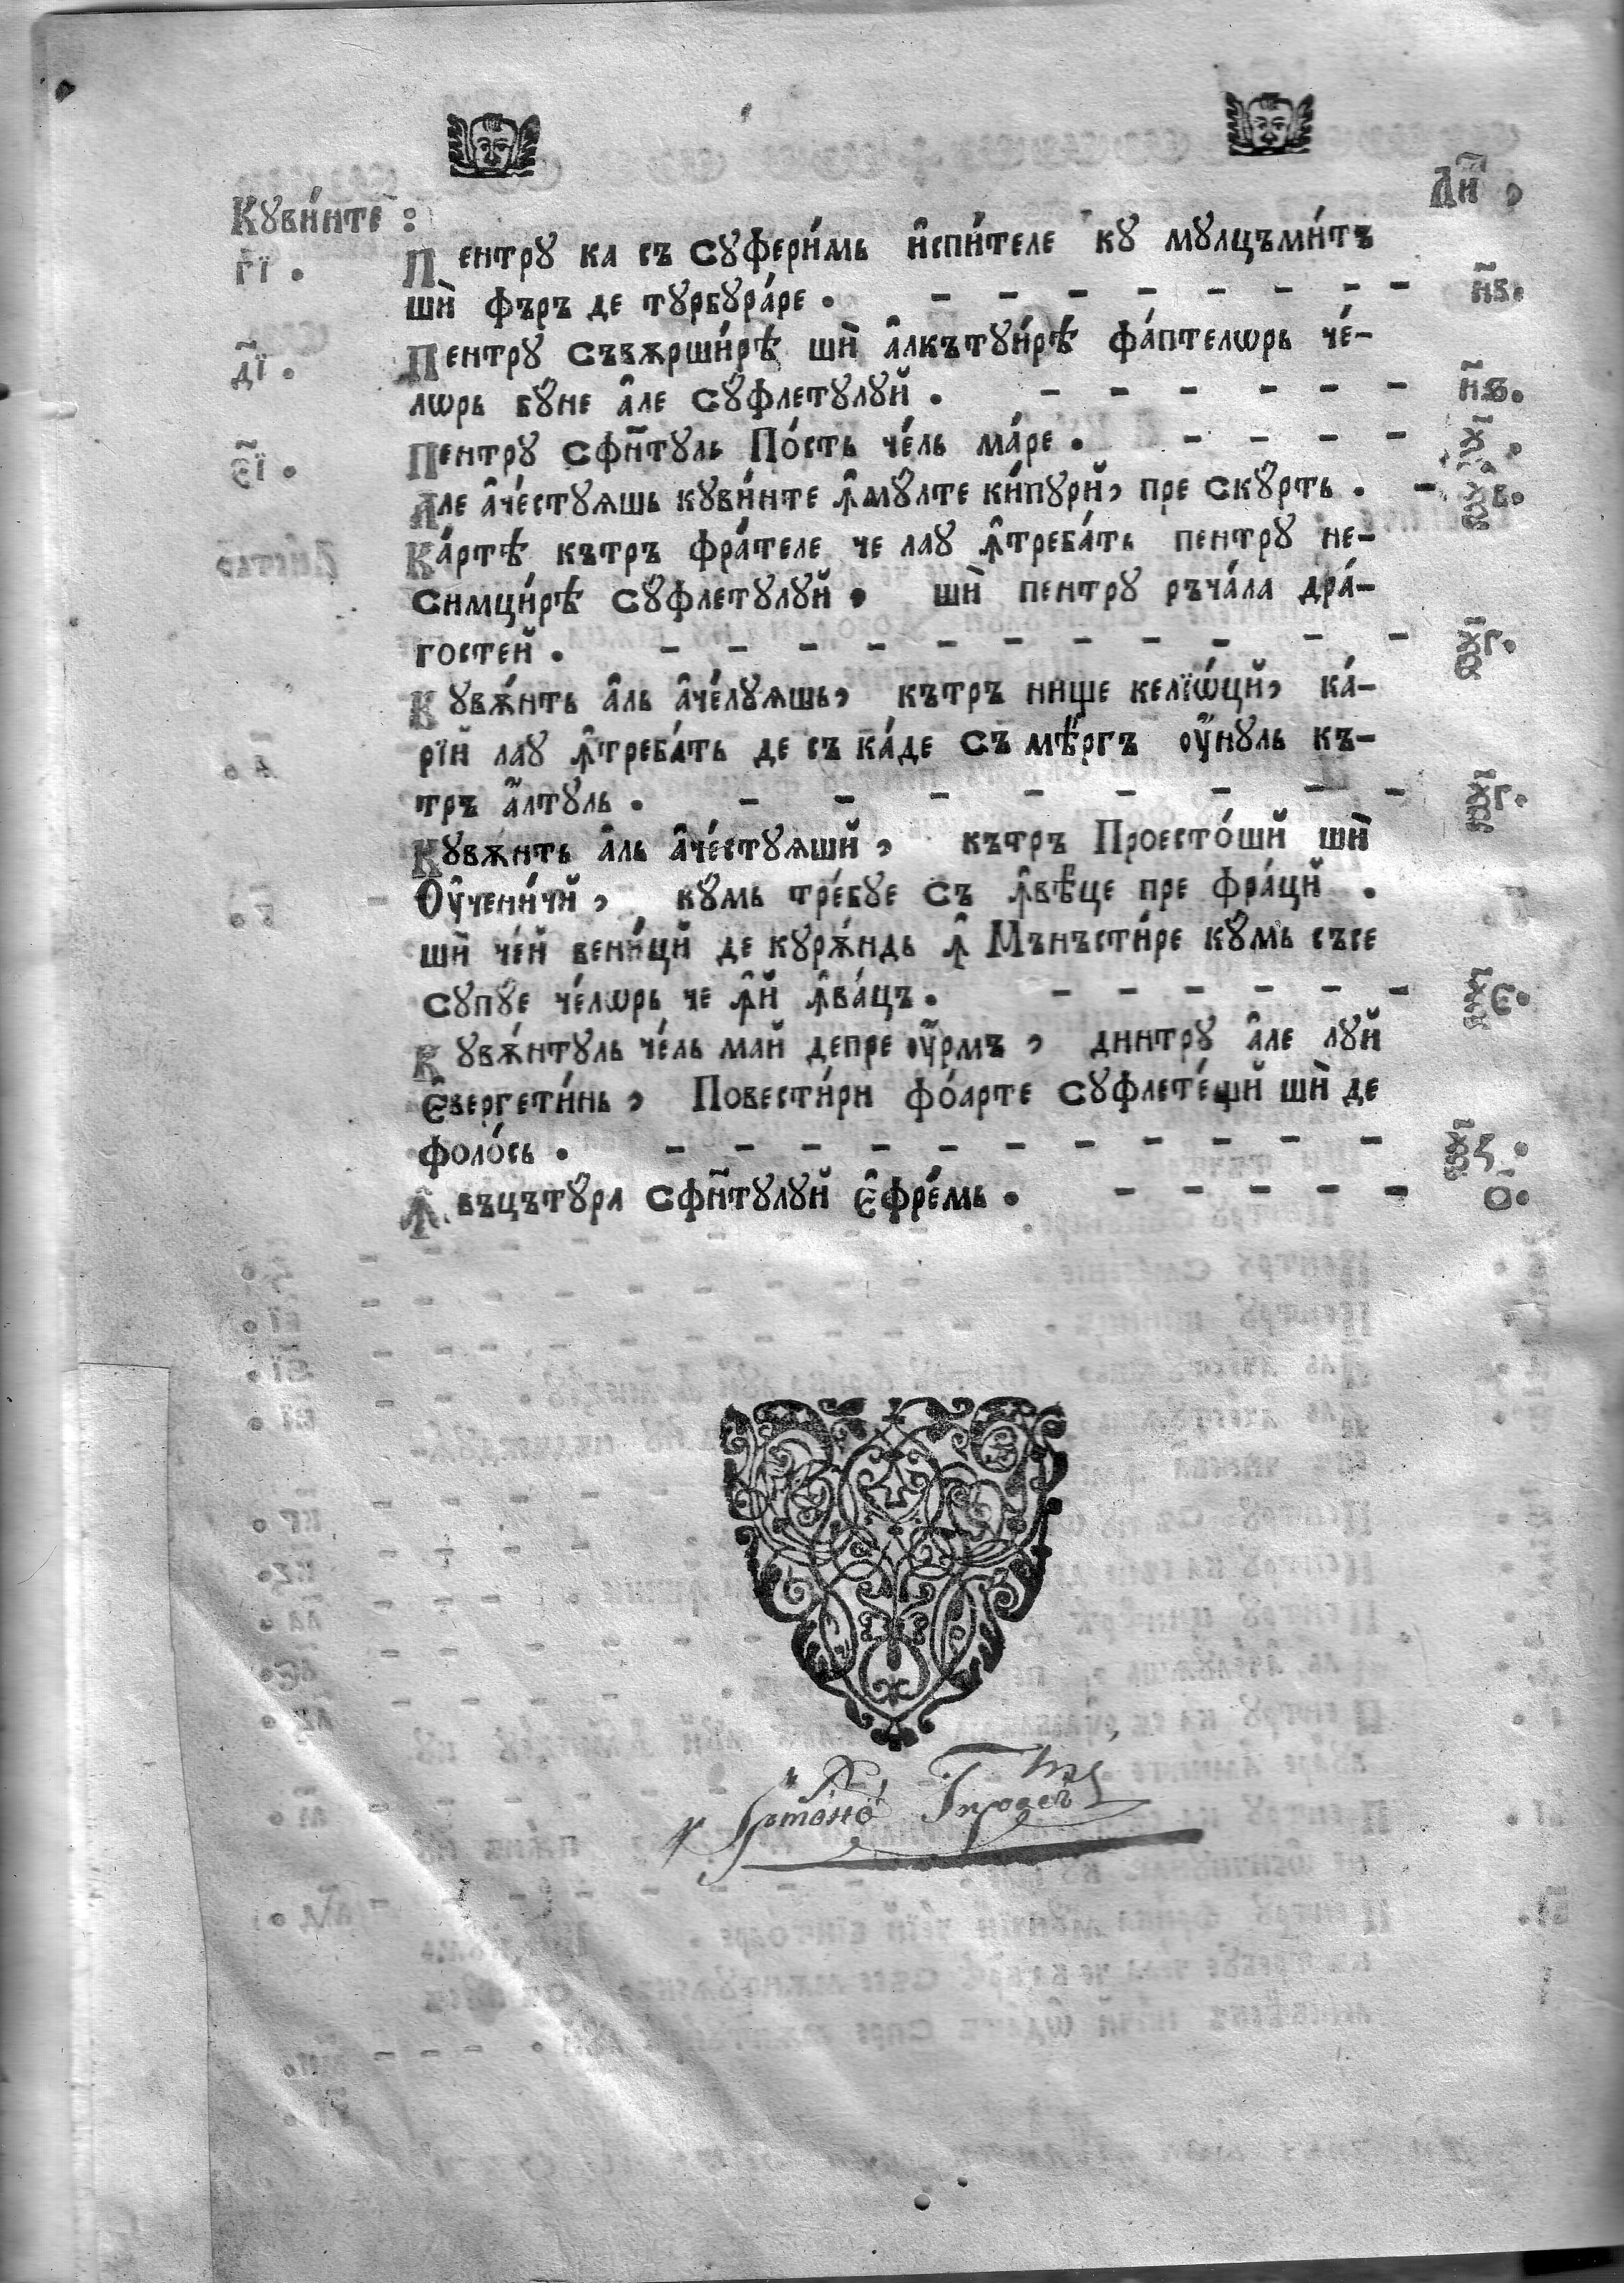 Кꙋви́нте : Ли҃ ,
г҃і . Пентрꙋ ка съ сꙋфери́мь и҆спи́теле кꙋ мꙋлцъми́тъ
шѝ фъръ де тꙋрбꙋра́ре . - - - - - - - -
д҃і . Пентрꙋ съвѫрши́рѣ шѝ а҆лкътꙋи́рѣ фа́птелѡрь че́-
лѡрь бꙋ́не а҆ле сꙋ́флетꙋлꙋй . - - - - - - н҃ѕ.
є҃і . Пентрꙋ сфн҃тꙋль По́сть че́ль ма́ре . - - - -
Але а҆че́стꙋѧшь кꙋви́нте ꙟ҆мꙋ́лте ки́пꙋрй, пре скꙋ́рть . -
Ка́ртѣ кътръ фра́теле че лаꙋ ꙟ҆треба́ть пентрꙋ не-
симци́рѣ сꙋ́флетꙋлꙋй . шѝ пентрꙋ ръча́ла дра́-
гостей . - - - - - - - - - - -
Кꙋвѫ́нть а҆ль а҆че́лꙋѧшь, кътръ нище келїѡ́цй, ка́-
рїй лаꙋ ꙟ҆треба́ть де съ ка́де съ мѣ́ргъ ᲂу҆́нꙋль къ-
тръ а҆́лтꙋль . - - - - - - - -
Кꙋвѫ́нть а҆ль а҆че́стꙋѧшй, кътръ Проесто́шй шѝ
Оу҆чени́чй, кꙋ́мь тре́бꙋе съ ꙟ҆вѣ́це пре фра́цй .
шѝ че́й вени́цй де кꙋрѫ́ндь ꙟ҆ Мънъсти́ре кꙋ́мь съсе
сꙋпꙋ́е че́лѡрь че ꙟ҆й ꙟ҆ва́цъ . - - - - - -
Кꙋвѫ́нтꙋль че́ль май депре ᲂу҆́рмъ , динтрꙋ а҆ле лꙋй
Є҆вергети́нь, Повести́ри фо́арте сꙋфлете́щй шѝ де
фоло́сь . - - - - - - - - - - -
Ꙟ҆въцътꙋ́ра сфн҃тꙋлꙋй Є҆фре́мь . - - - - - о҃.